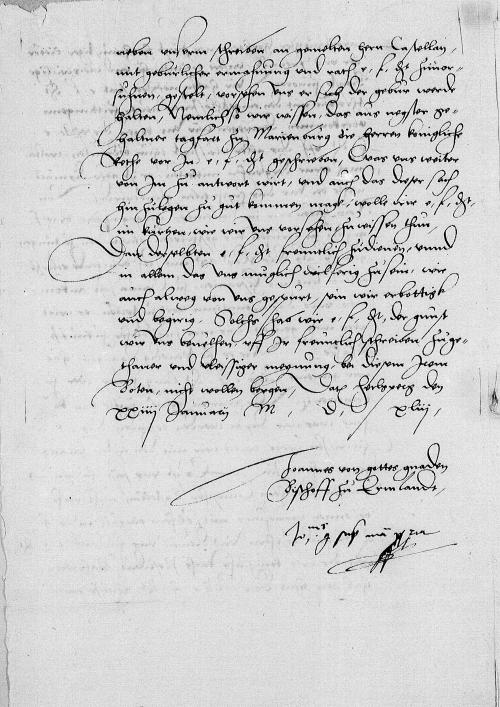 neben unserm schreiben an gemelten hern Castellan,
mit geburlicher ermahnung und rath e, f, dt hinor-
suchen, gestelt, vorsehen uns er sich der gebur werde
halten, Nemlich so wir wissen, das aus negster ge-
haltner tagfart zu Marienburg die herren konigliche
Rethe vor In, e, f, dt geschrieben, Was uns weiter
von Im zu antwort wirt, und auch das dieser sach
hinzulegen zu gut kommen mag, wolle wir e, f, dt,
im kurtzen, wie wir uns vorsehen, zuwissen thun,
Dan derselbten e, f, dt freuntlich zudienen, unnd
in allem das uns muglich wilferig zusein, wie
auch alweg von uns gespurt, sein wir erbottigk
und begirig, Solchs has wir e, f, dt, der gunst
wir uns bevelhen, uff Ir freuntlich schreiben zuge-
thaner und vleissiger meynung, bei diesem Irem
Boten, nicht wollen bergen, Datum Heilsperg den
xxiiij Januarij M, D, xliij,
Joannes von gottes gnaden
Bischoff zu Ermlandt,